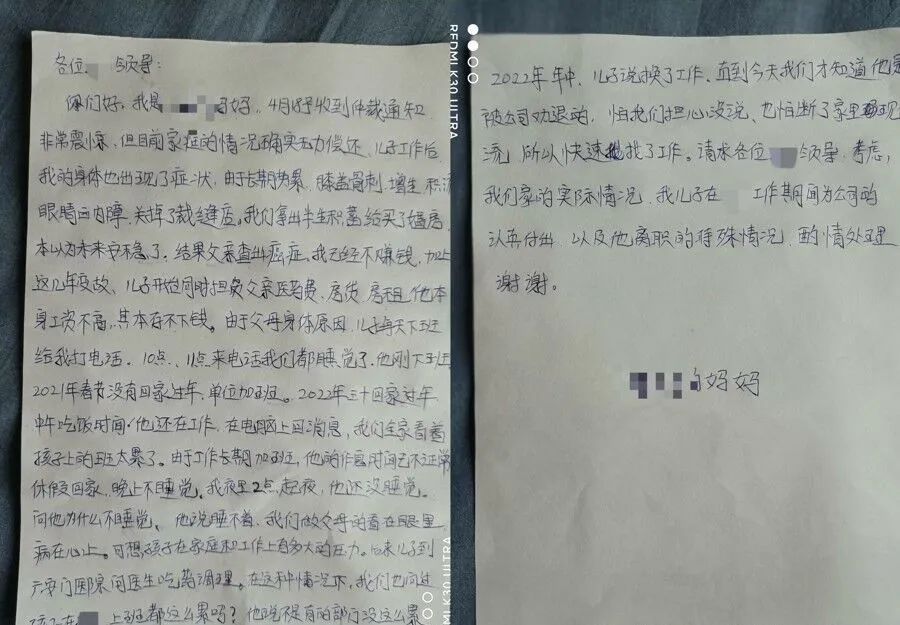 各位 领导：
你们好，我是 的妈，4月18号收到仲裁通知
非常震惊，但目前家庭的情况确实无力偿还，儿子工作后
我的身体也出现了症状，由于长期劳累，膝盖骨刺，增生，积液
眼睛白内障，关掉了裁缝店，我们拿出半生积蓄给买了婚房，
本以为未来安稳了，结果父亲查出癌症，我已经不赚钱，加上
这几年变故，儿子开始同时担负父亲医药费、房贷、房租，他本
身工资不高，其本存不下钱。由于父母身体原因，儿子每天下班
给我打电话，10点、11点来电话我们都睡觉了，他刚下班
2021年春节没有回家过年，单位加班。2022年三十回家过年，
中午吃饭时间，他还在工作，在电脑上回消息，我们全家看着
孩子上的班太累了。由于工作长期加班，他的作息时间已不正常
休假回家，晚上不睡觉，我夜里2点起夜，他还没睡觉。
问他为什么不睡觉，他说睡不着，我们做父母的看在眼里
病在心上。可想孩子在家庭和工作上有多大的压力。后来儿子到
医院问医生吃药调理。在这种情况下，我们也问过
孩子在 上班都这么累吗？他说不是有的部门没这么累
2022年年中，儿子说换了工作，直到今天我们才知道他是
被公司劝退的，怕我们担心没说，也怕断了家里现
流，所以快速找了工作。请求各位 领导，考虑，
我们家的实际情况，我儿子在 工作期间为公司的
认真付出，以及他离职的特殊情况，酌情处理
谢谢。
妈妈
REDMI K30 ULTRA
REDMI K30 ULTRA